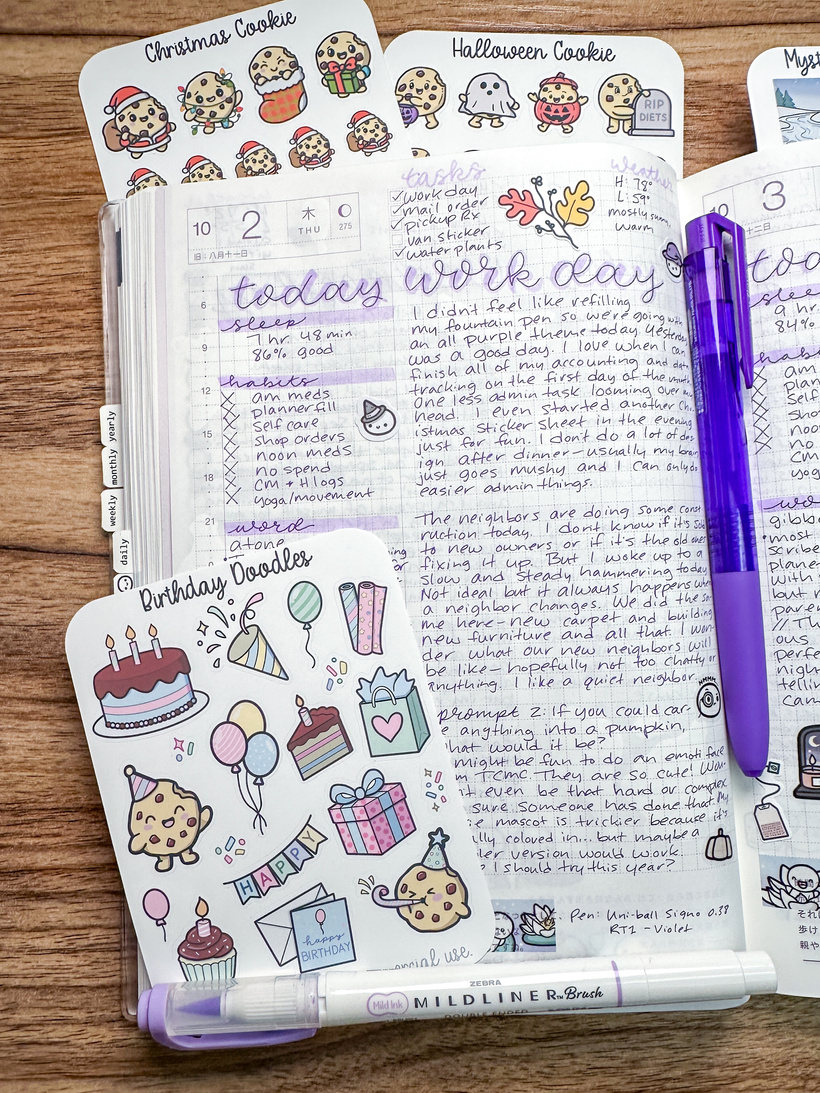 Christmas Cookie
Halloween Cookie
RIP
DIETS
Myst
10 2 木
THU
275
旧:八月十一日
tasks
✓ work day
✓ mail order
✓ pickup Rx
van sticker
✓ water plants
weather
H: 78°
L: 59°
mostly sunny
warm
today work day
6
9
12
15
18
21
sleep
7 hr. 48 min
86% good
habits
am meds
planner fill
self care
shop orders
noon meds
no spend
CM + H logs
yoga/movement
word
atone
I didn't feel like refilling
my fountain pen so we're going with
an all purple theme today. Yesterday
was a good day. I love when I can
finish all of my accounting and data
tracking on the first day of the month.
One less admin task looming over my
head. I even started another Chr
istmas sticker sheet in the evening
just for fun. I don't do a lot of des
ign after dinner - usually my brain
just goes mushy and I can only do
easier admin things.
The neighbors are doing some const
ruction today. I don't know if it's
to new owners or if it's the old ones
fixing it up. But I woke up to a
slow and steady hammering today.
Not ideal but it always happens when
a neighbor changes. We did the sa
me here - new carpet and building
new furniture and all that. I won
der what our new neighbors will
be like - hopefully not too chatty or
anything. I like a quiet neighbor.
HMMM
prompt 2: If you could car-
ve anything into a pumpkin,
what would it be?
might be fun to do an emoti face
m TCMC. They are so cute! Won-
t even be that hard or complex
sure someone has done that. My
mascot is trickier because it's
lly colored in... but maybe a
ler version would work.
I should try this year?
Pen: Uni-ball Signo 0.38
RT1 - Violet
yearly
monthly
weekly
daily
Birthday Doodles
HAPPY
happy
BIRTHDAY
ercial use.
ZEBRA
Mild Ink
MILDLINER™ Brush
10 3
二日
tod
sle
9 hr.
84%
hab
am
plan
Self
sho
noo
no
CM
yog
wo
gibbo
most
scribe
plane
with
but n
pare
// Th
ous
perfe
nigh
tellin
can
それ
歩け
親や